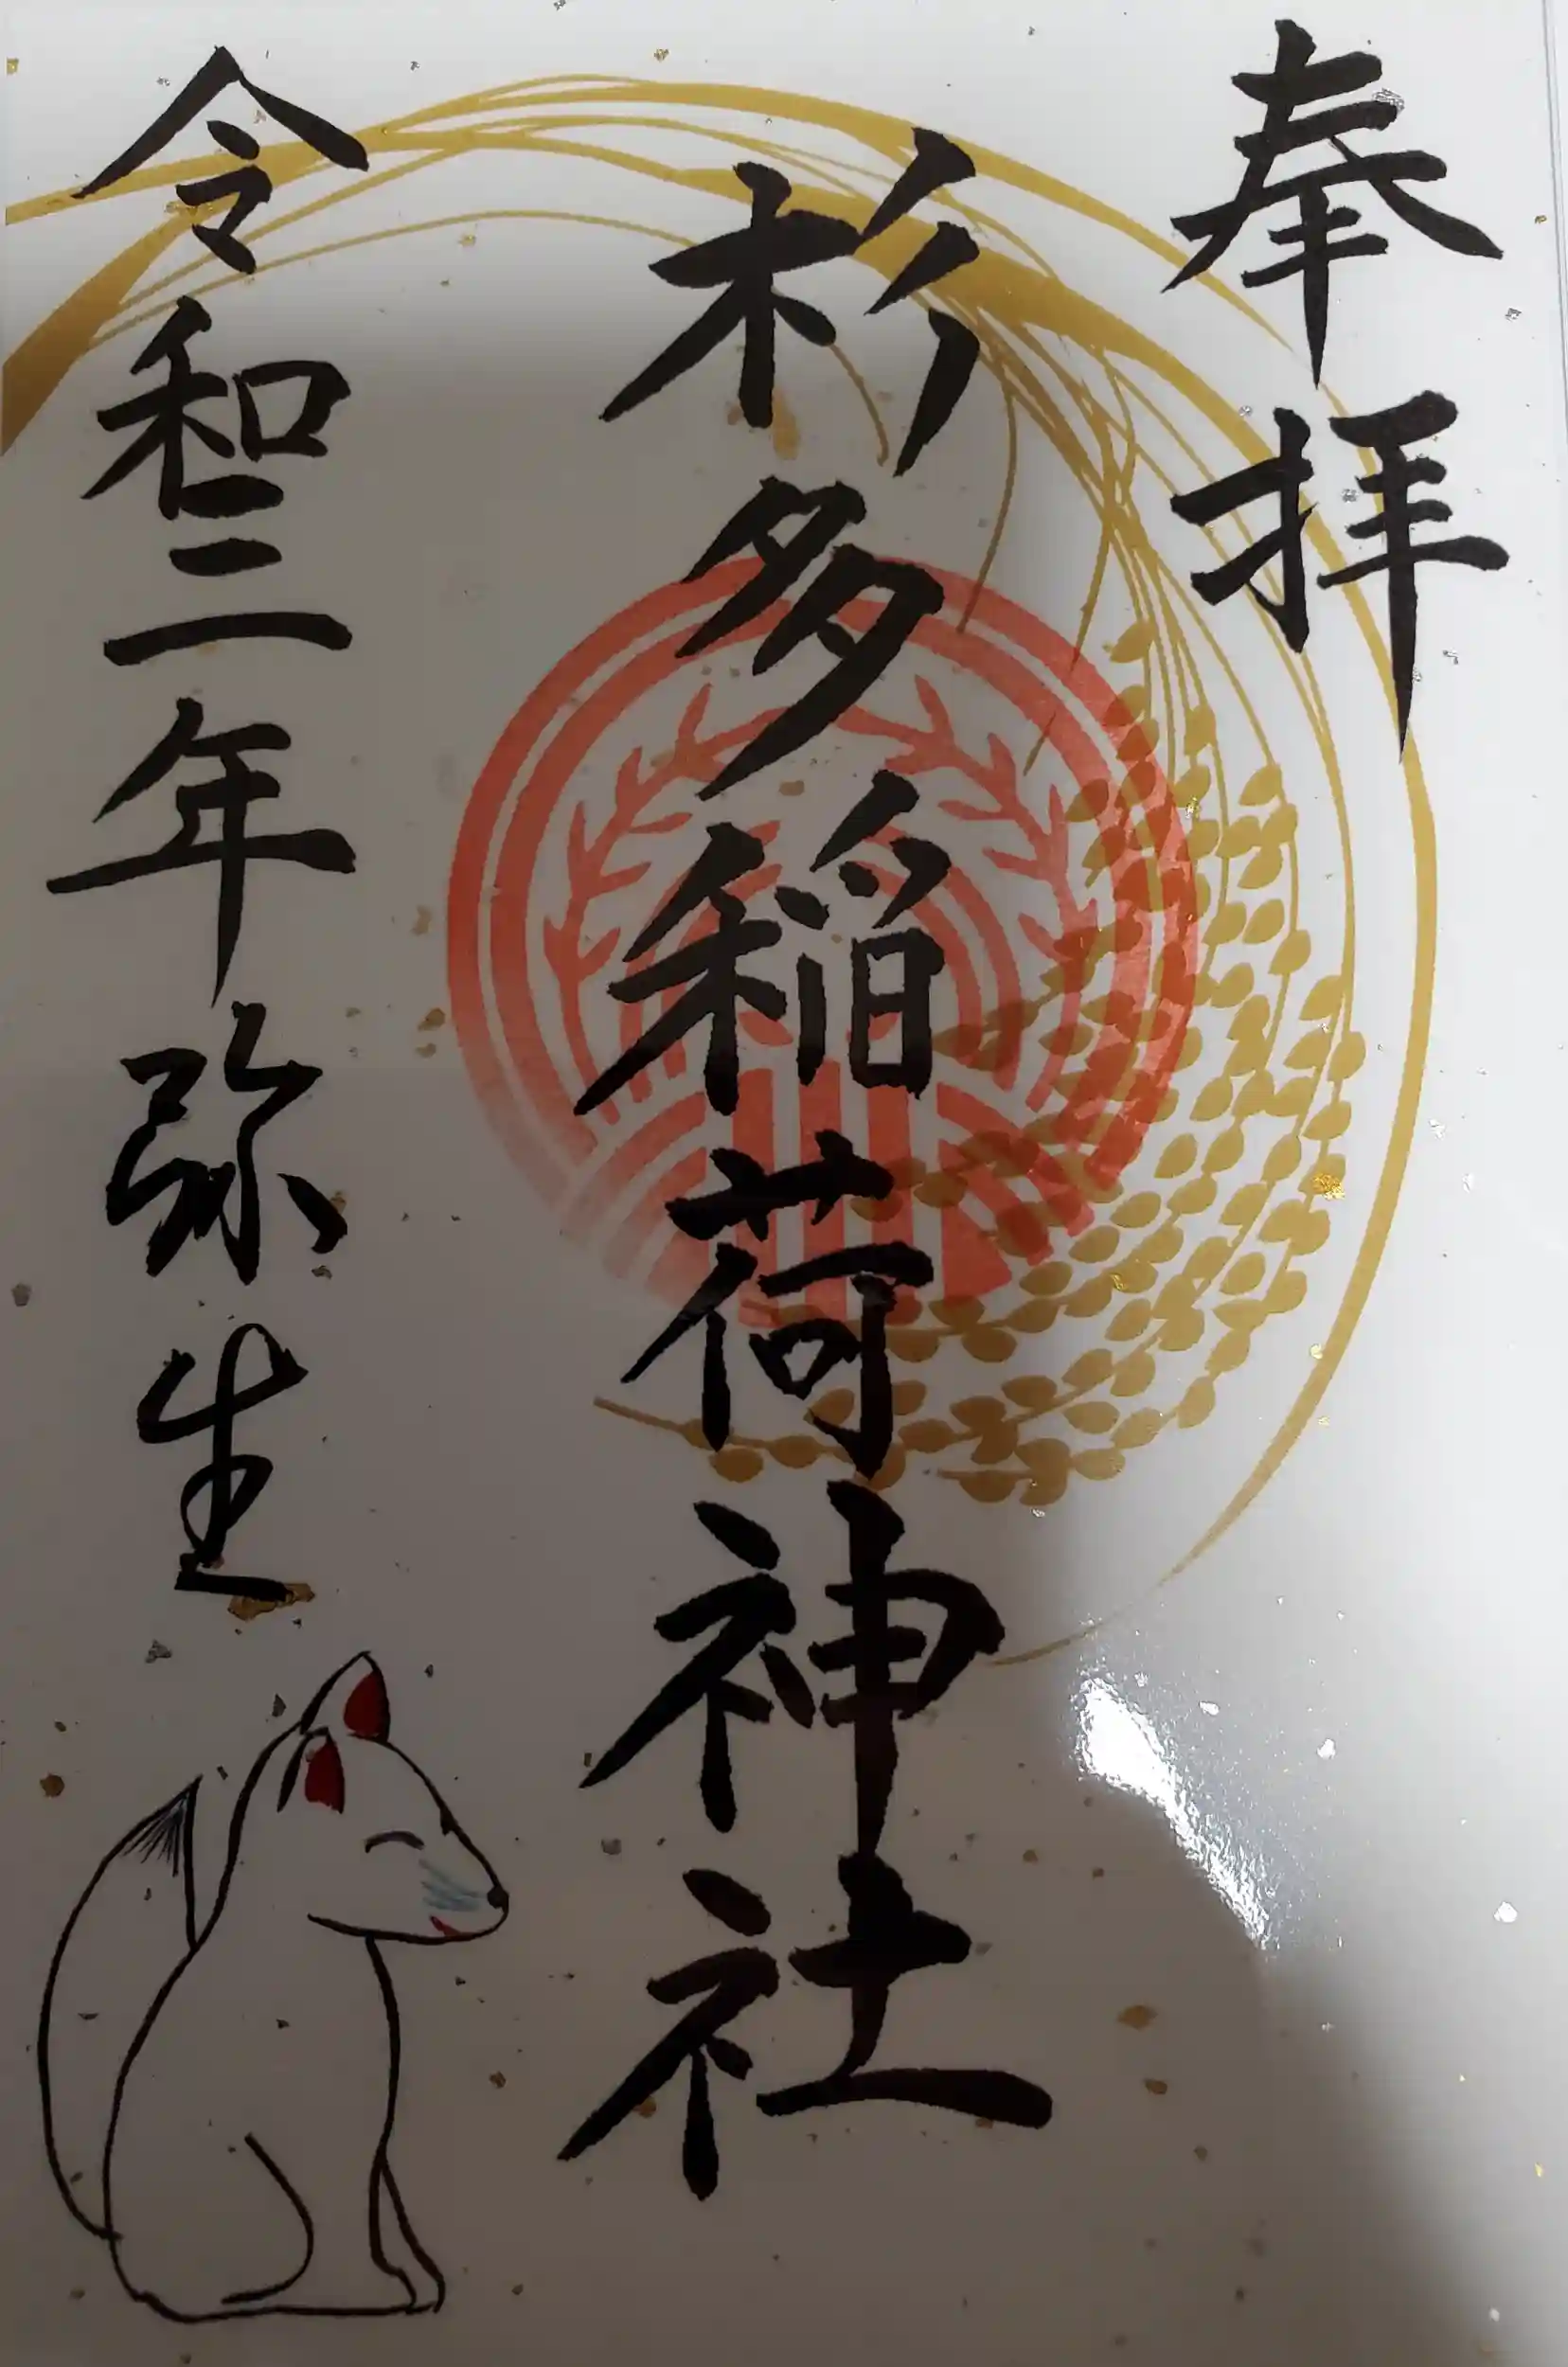 奉拝
杉多稲荷神社
令和三年弥生